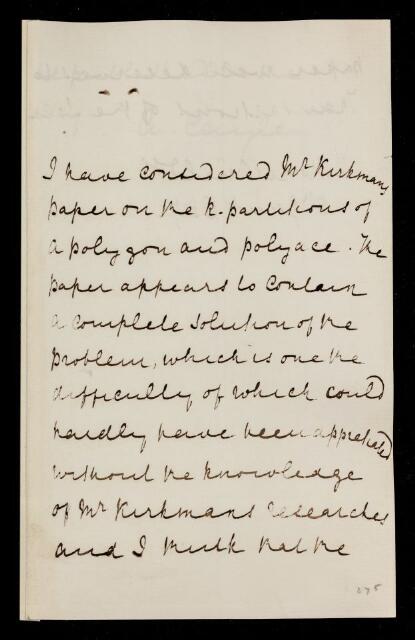 I have considered Mr Kirkmans
paper on the k-partitions of
a polygon and polyace. The
paper appears to contain
a complete solution of the
problem, which is one the
difficulty of which could
hardly have been appreciated
without the knowledge
of Mr Kirkmans researches
and I think that the
275